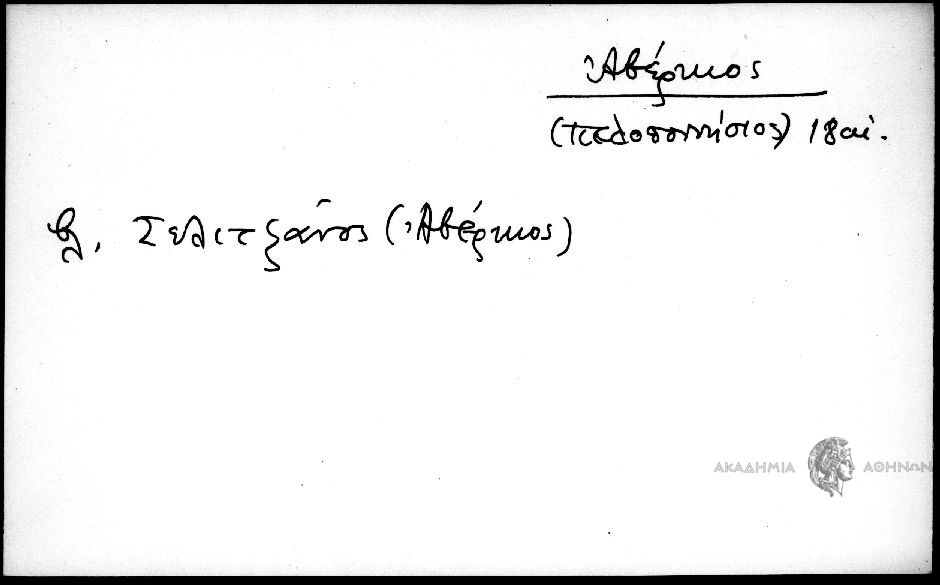 Ἀβέρκιος
(Πελοποννήσιος) 18 αἰ.
βλ. Σελιτζᾶνος (Ἀβέρκιος)
ΑΚΑΔΗΜΙΑ ΑΘΗΝΩΝ